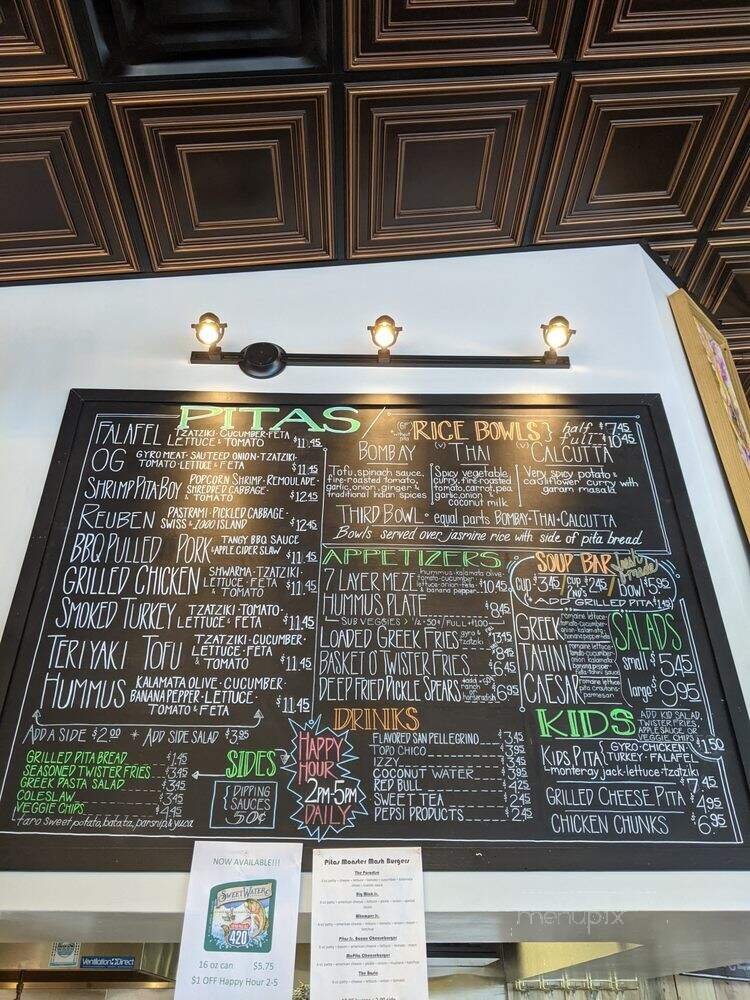 PITAS
FALAFEL TZATZIKI·CUCUMBER·FETA
LETTUCE & TOMATO $11.45
OG GYRO MEAT·SAUTEED ONION·TZATZIKI·
TOMATO·LETTUCE & FETA $11.45
SHRIMP PITA-BOY POPCORN SHRIMP·REMOULADE·
SHREDDED CABBAGE·
& TOMATO $12.45
REUBEN PASTRAMI·PICKLED CABBAGE·
SWISS & 1000 ISLAND $12.45
BBQ PULLED PORK TANGY BBQ SAUCE
& APPLE CIDER SLAW $11.45
GRILLED CHICKEN SHWARMA·TZATZIKI·
LETTUCE·FETA
& TOMATO $11.45
SMOKED TURKEY TZATZIKI·TOMATO·
LETTUCE & FETA $11.45
TERIYAKI TOFU TZATZIKI·CUCUMBER·
LETTUCE·FETA
& TOMATO $11.45
HUMMUS KALAMATA OLIVE·CUCUMBER·
BANANA PEPPER·LETTUCE·
TOMATO & FETA $11.45
ADD A SIDE $2.00 + ADD SIDE SALAD $3.95
GRILLED PITA BREAD $1.45
SEASONED TWISTER FRIES $3.45
GREEK PASTA SALAD $3.45
COLESLAW $3.45
VEGGIE CHIPS $4.45
taro sweet potato, batata, parsnip, & yuca
SIDES
DIPPING
SAUCES
50¢
RICE BOWLS} half $7.45
full $10.45
BOMBAY (V) THAI (V) CALCUTTA
Tofu, spinach sauce,
fire-roasted tomato,
garlic, onion, ginger &
traditional Indian spices
Spicy vegetable
curry, fire-roasted
tomato, carrot, pea
garlic, onion &
coconut milk
Very spicy potato &
cauliflower curry with
garam masala
THIRD BOWL - equal parts BOMBAY·THAI·CALCUTTA
Bowls served over jasmine rice with side of pita bread
APPETIZERS
7 LAYER MEZE hummus·kalamata olive·
tomato·cucumber·
lettuce·onion·feta
& banana pepper $10.45
HUMMUS PLATE $8.45
SUB VEGGIES > 1/2 ·50¢ / FULL +1.00
LOADED GREEK FRIES gyro &
tzatziki $13.45
$8.45
BASKET O' TWISTER FRIES $6.45
DEEP FRIED PICKLE SPEARS add
ranch
or
horseradish $6.95
SOUP BAR fresh
made
CUP $3.45 / CUP 2 ND'S $2.45 / BOWL $5.95
ADD GRILLED PITA $1.45
SALADS
GREEK romaine lettuce·
tomato·cucumber·
onion·kalamata·
banana pepper·
feta
TAHINI romaine lettuce·
tomato·cucumber·
onion·kalamata·
banana pepper·
feta·tahini sauce
CAESAR romaine lettuce
pita croutons·
parmesan
small $5.45
large $9.95
DRINKS
FLAVORED SAN PELLEGRINO $3.45
TOPO CHICO $3.95
IZZY $3.45
COCONUT WATER $3.95
RED BULL $4.25
SWEET TEA $2.45
PEPSI PRODUCTS $2.45
HAPPY
HOUR
2PM-5PM
DAILY
KIDS ADD KID SALAD,
TWISTER FRIES,
APPLE SAUCE, OR
VEGGIE CHIPS $1.50
KIDS PITA { GYRO·CHICKEN
TURKEY·FALAFEL
monteray jack·lettuce·tzatziki $7.45
GRILLED CHEESE PITA $4.95
CHICKEN CHUNKS $6.95
NOW AVAILABLE!!!
SWEETWATER
420
16 oz can $5.75
$1 OFF Happy Hour 2-5
Pitas Monster Mash Burgers
The Paradise
Big Blink Jr.
Whomper Jr.
Pitas Jr. Bacon Cheeseburger
McPita Cheeseburger
The Basic
Ventilation Direct
menupix